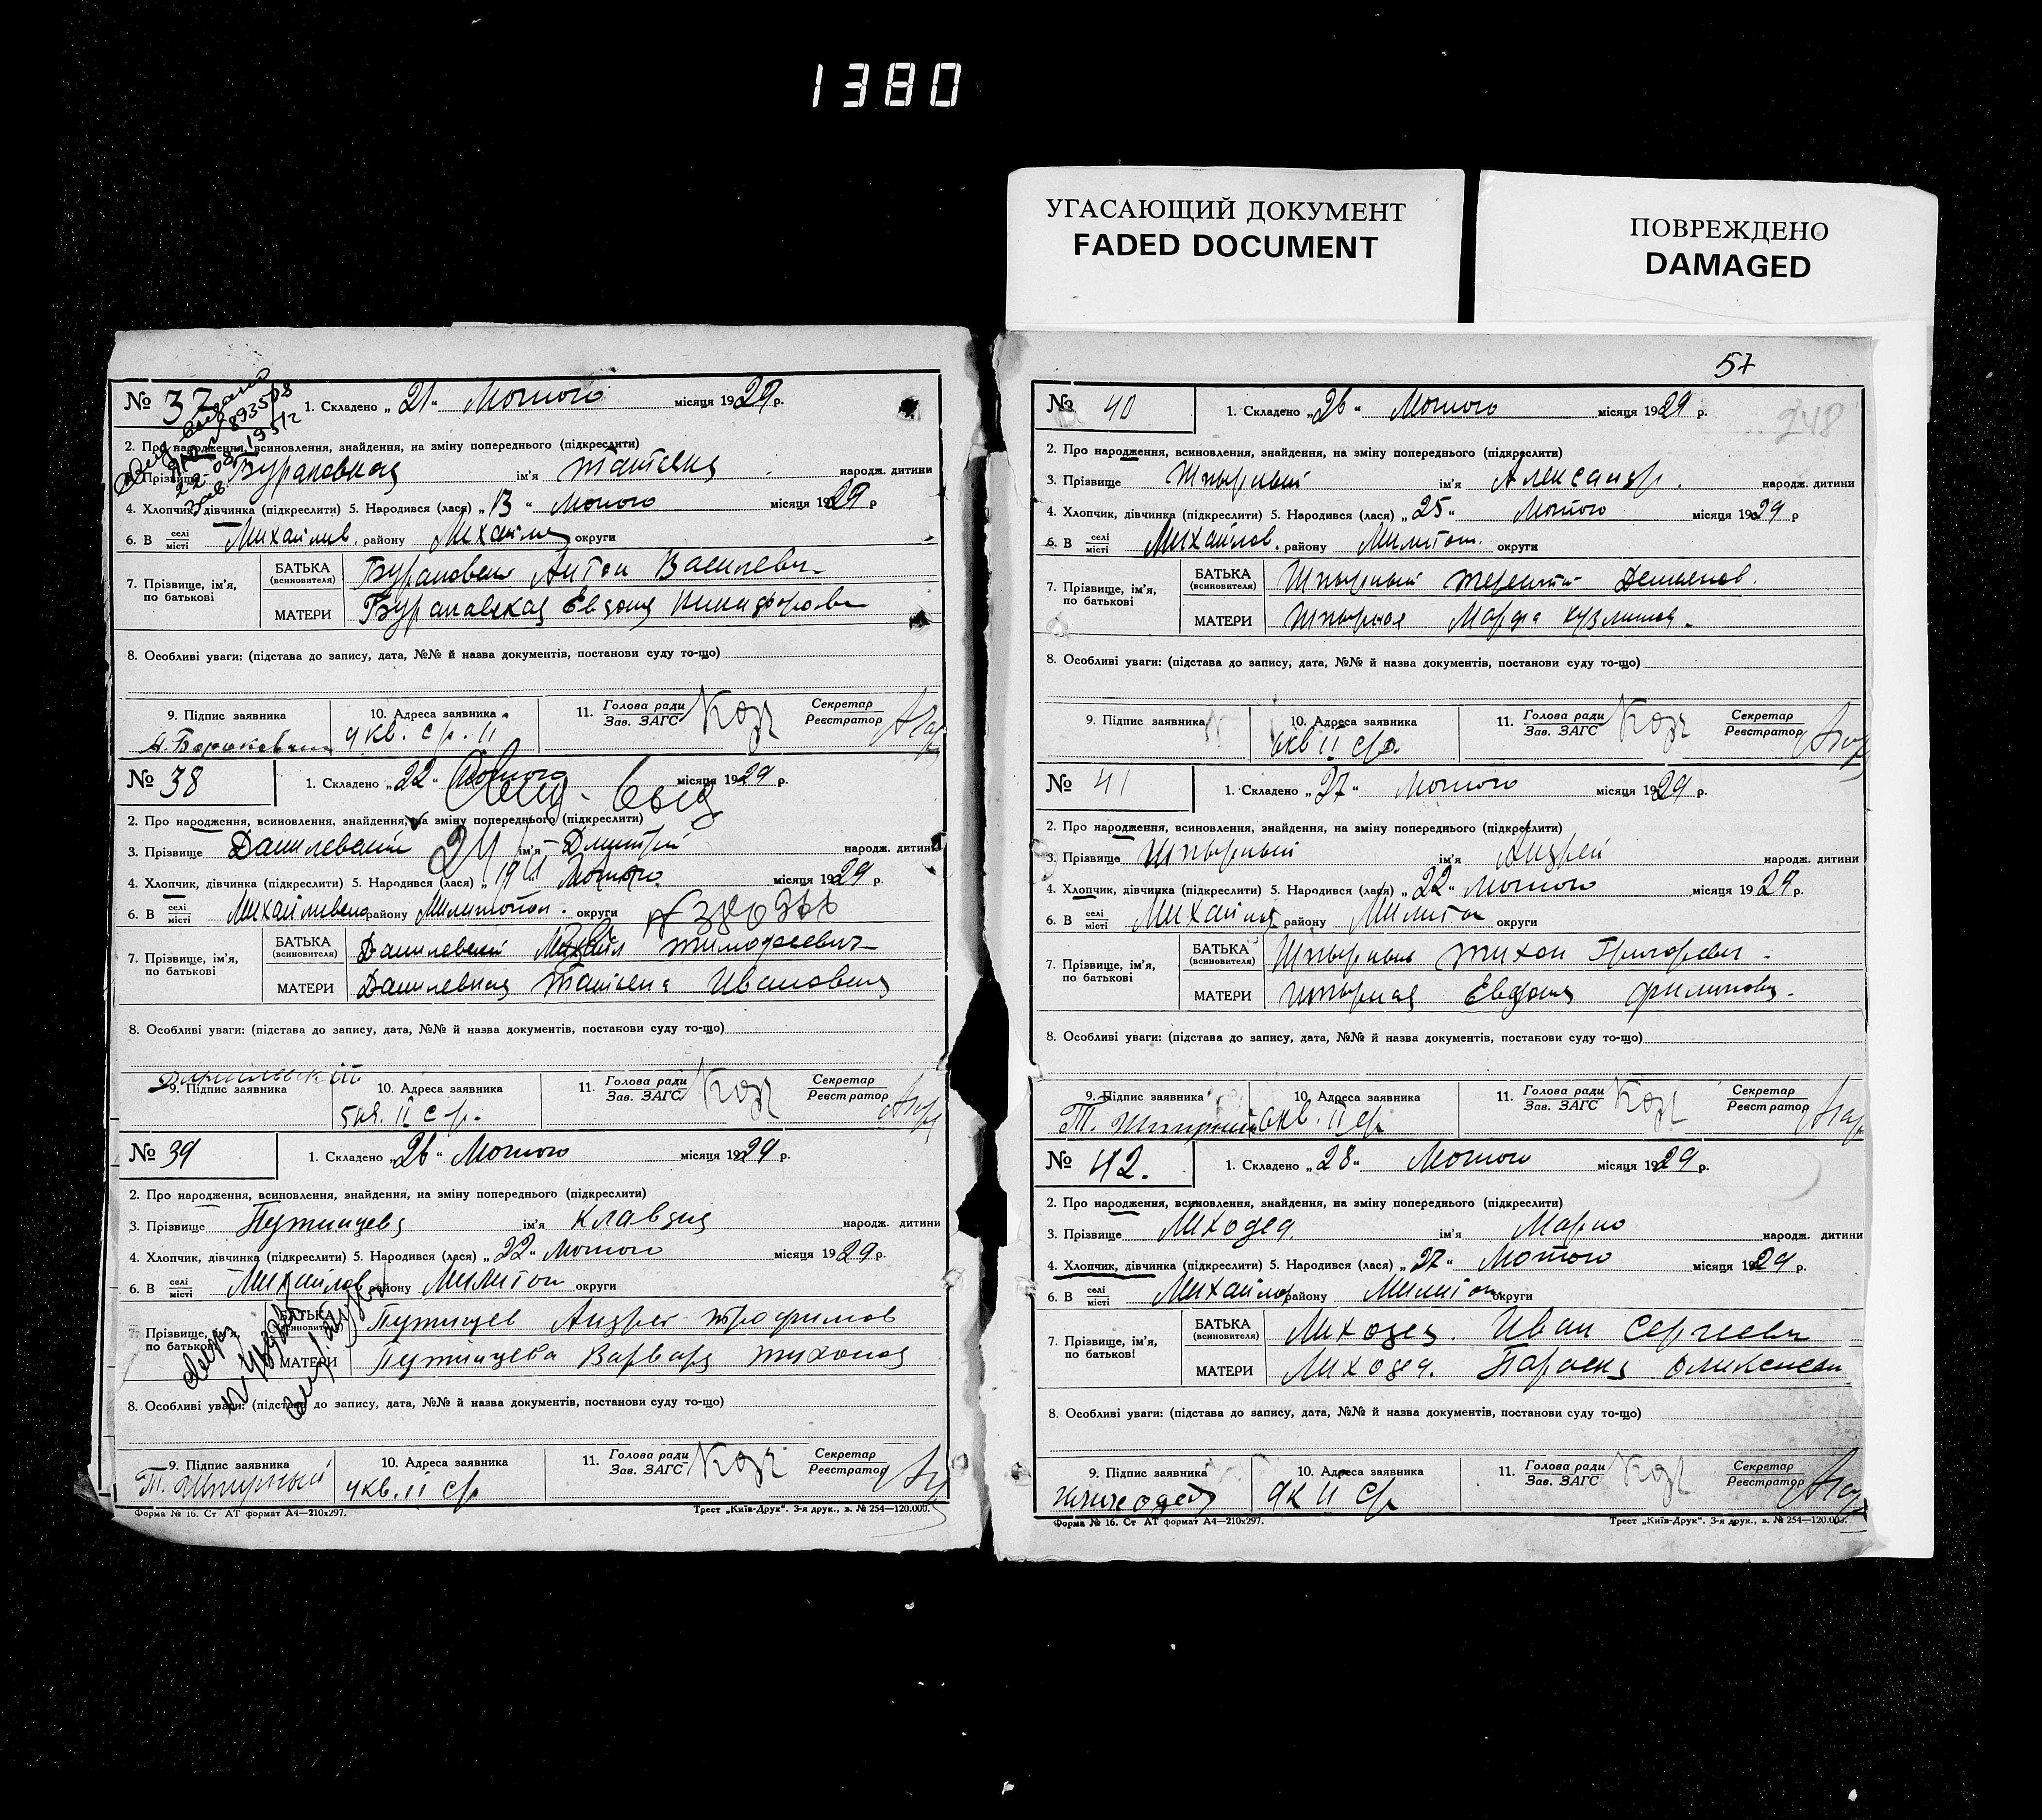 1380
УГАСАЮЩИЙ ДОКУМЕНТ
FADED DOCUMENT
ПОВРЕЖДЕНО
DAMAGED
№ 37
1. Складено „21“ Лютого місяця 1929 р.
2. Про народження, всиновлення, знайдення, на зміну попереднього (підкреслити)
Прізвище ім'я народж. дитини
4. Хлопчик, дівчинка (підкреслити) 5. Народився (лася) „13“ Лютого місяця 1929 р
6. В селі місті Михайлив. району округи
7. Прізвище, ім'я, по батькові
БАТЬКА (всиновителя) Антон Василевич
МАТЕРИ Евдокия
8. Особливі уваги: (підстава до запису, дата, №№ й назва документів, постанови суду то-що)
9. Підпис заявника
10. Адреса заявника 4 кв. с/р. II
11. Голова ради Зав. ЗАГС
Секретар Реєстратор
№ 38
1. Складено „22“ Лютого місяця 1929 р.
2. Про народження, всиновлення, знайдення, на зміну попереднього (підкреслити)
3. Прізвище Данилевский ім'я Дмитрий народж. дитини
4. Хлопчик, дівчинка (підкреслити) 5. Народився (лася) „19“ Лютого місяця 1929 р.
6. В селі місті району Мелитопол. округи
7. Прізвище, ім'я, по батькові
БАТЬКА (всиновителя) Данилевский Михаил Тимофеевич
МАТЕРИ Данилевская Татьяна Ивановна
8. Особливі уваги: (підстава до запису, дата, №№ й назва документів, постанови суду то-що)
9. Підпис заявника
10. Адреса заявника 5 кв. II с/р.
11. Голова ради Зав. ЗАГС
Секретар Реєстратор
№ 39
1. Складено „26“ Лютого місяця 1929 р.
2. Про народження, всиновлення, знайдення, на зміну попереднього (підкреслити)
3. Прізвище Путинцева ім'я Клавдия народж. дитини
4. Хлопчик, дівчинка (підкреслити) 5. Народився (лася) „22“ Лютого місяця 1929 р.
6. В селі місті Михайлов району Мелитоп округи
7. Прізвище, ім'я, по батькові
БАТЬКА (всиновителя) Путинцев Андрей Трофимов
МАТЕРИ Путинцева Варвара Тихонов
8. Особливі уваги: (підстава до запису, дата, №№ й назва документів, постанови суду то-що)
9. Підпис заявника
10. Адреса заявника 4 кв. II с/р
11. Голова ради Зав. ЗАГС
Секретар Реєстратор
Форма № 16. Ст АТ формат А4—210х297.
Трест „Київ-Друк“. 3-я друк., в. № 254—120.000.
57
248
№ 40
1. Складено „26“ Лютого місяця 1929 р.
2. Про народження, всиновлення, знайдення, на зміну попереднього (підкреслити)
3. Прізвище Шпырный ім'я Александр. народж. дитини
4. Хлопчик, дівчинка (підкреслити) 5. Народився (лася) „25“ Лютого місяця 1929 р
6. В селі місті Михайлов. району Мелитоп. округи
7. Прізвище, ім'я, по батькові
БАТЬКА (всиновителя) Шпырный Терентий
МАТЕРИ Шпырная Марфа
8. Особливі уваги: (підстава до запису, дата, №№ й назва документів, постанови суду то-що)
9. Підпис заявника
10. Адреса заявника 6 кв II с/р.
11. Голова ради Зав. ЗАГС
Секретар Реєстратор
№ 41
1. Складено „27“ Лютого місяця 1929 р.
2. Про народження, всиновлення, знайдення, на зміну попереднього (підкреслити)
3. Прізвище Шпырный ім'я Андрей народж. дитини
4. Хлопчик, дівчинка (підкреслити) 5. Народився (лася) „22“ Лютого місяця 1929 р.
6. В селі місті району Мелитоп округи
7. Прізвище, ім'я, по батькові
БАТЬКА (всиновителя) Шпырный Тихон Григоревич
МАТЕРИ Шпырная Евдокия
8. Особливі уваги: (підстава до запису, дата, №№ й назва документів, постанови суду то-що)
9. Підпис заявника
10. Адреса заявника 6 кв. II с/р
11. Голова ради Зав. ЗАГС
Секретар Реєстратор
№ 42.
1. Складено „28“ Лютого місяця 1929 р.
2. Про народження, всиновлення, знайдення, на зміну попереднього (підкреслити)
3. Прізвище Лиходед. ім'я народж. дитини
4. Хлопчик, дівчинка (підкреслити) 5. Народився (лася) „27“ Лютого місяця 1929 р.
6. В селі місті району Мелитоп округи
7. Прізвище, ім'я, по батькові
БАТЬКА (всиновителя) Лиходед. Иван Сергеевич
МАТЕРИ Лиходед.
8. Особливі уваги: (підстава до запису, дата, №№ й назва документів, постанови суду то-що)
9. Підпис заявника
10. Адреса заявника II с/р
11. Голова ради Зав. ЗАГС
Секретар Реєстратор
Форма № 16. Ст АТ формат А4—210х297.
Трест „Київ-Друк“. 3-я друк., в. № 254—120.000.